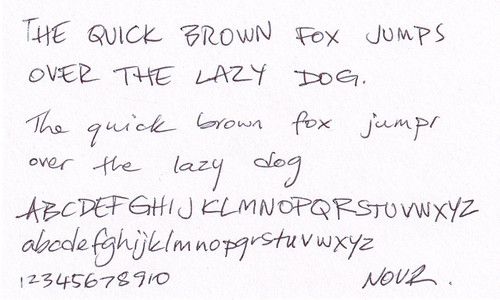 THE QUICK BROWN FOX JUMPS
OVER THE LAZY DOG.
The quick brown fox jumps
over the lazy dog
ABCDEFGHIJKLMNOPQRSTUVWXYZ
abcdefghijklmnopqrstuvwxyz
12345678910 NOVR.